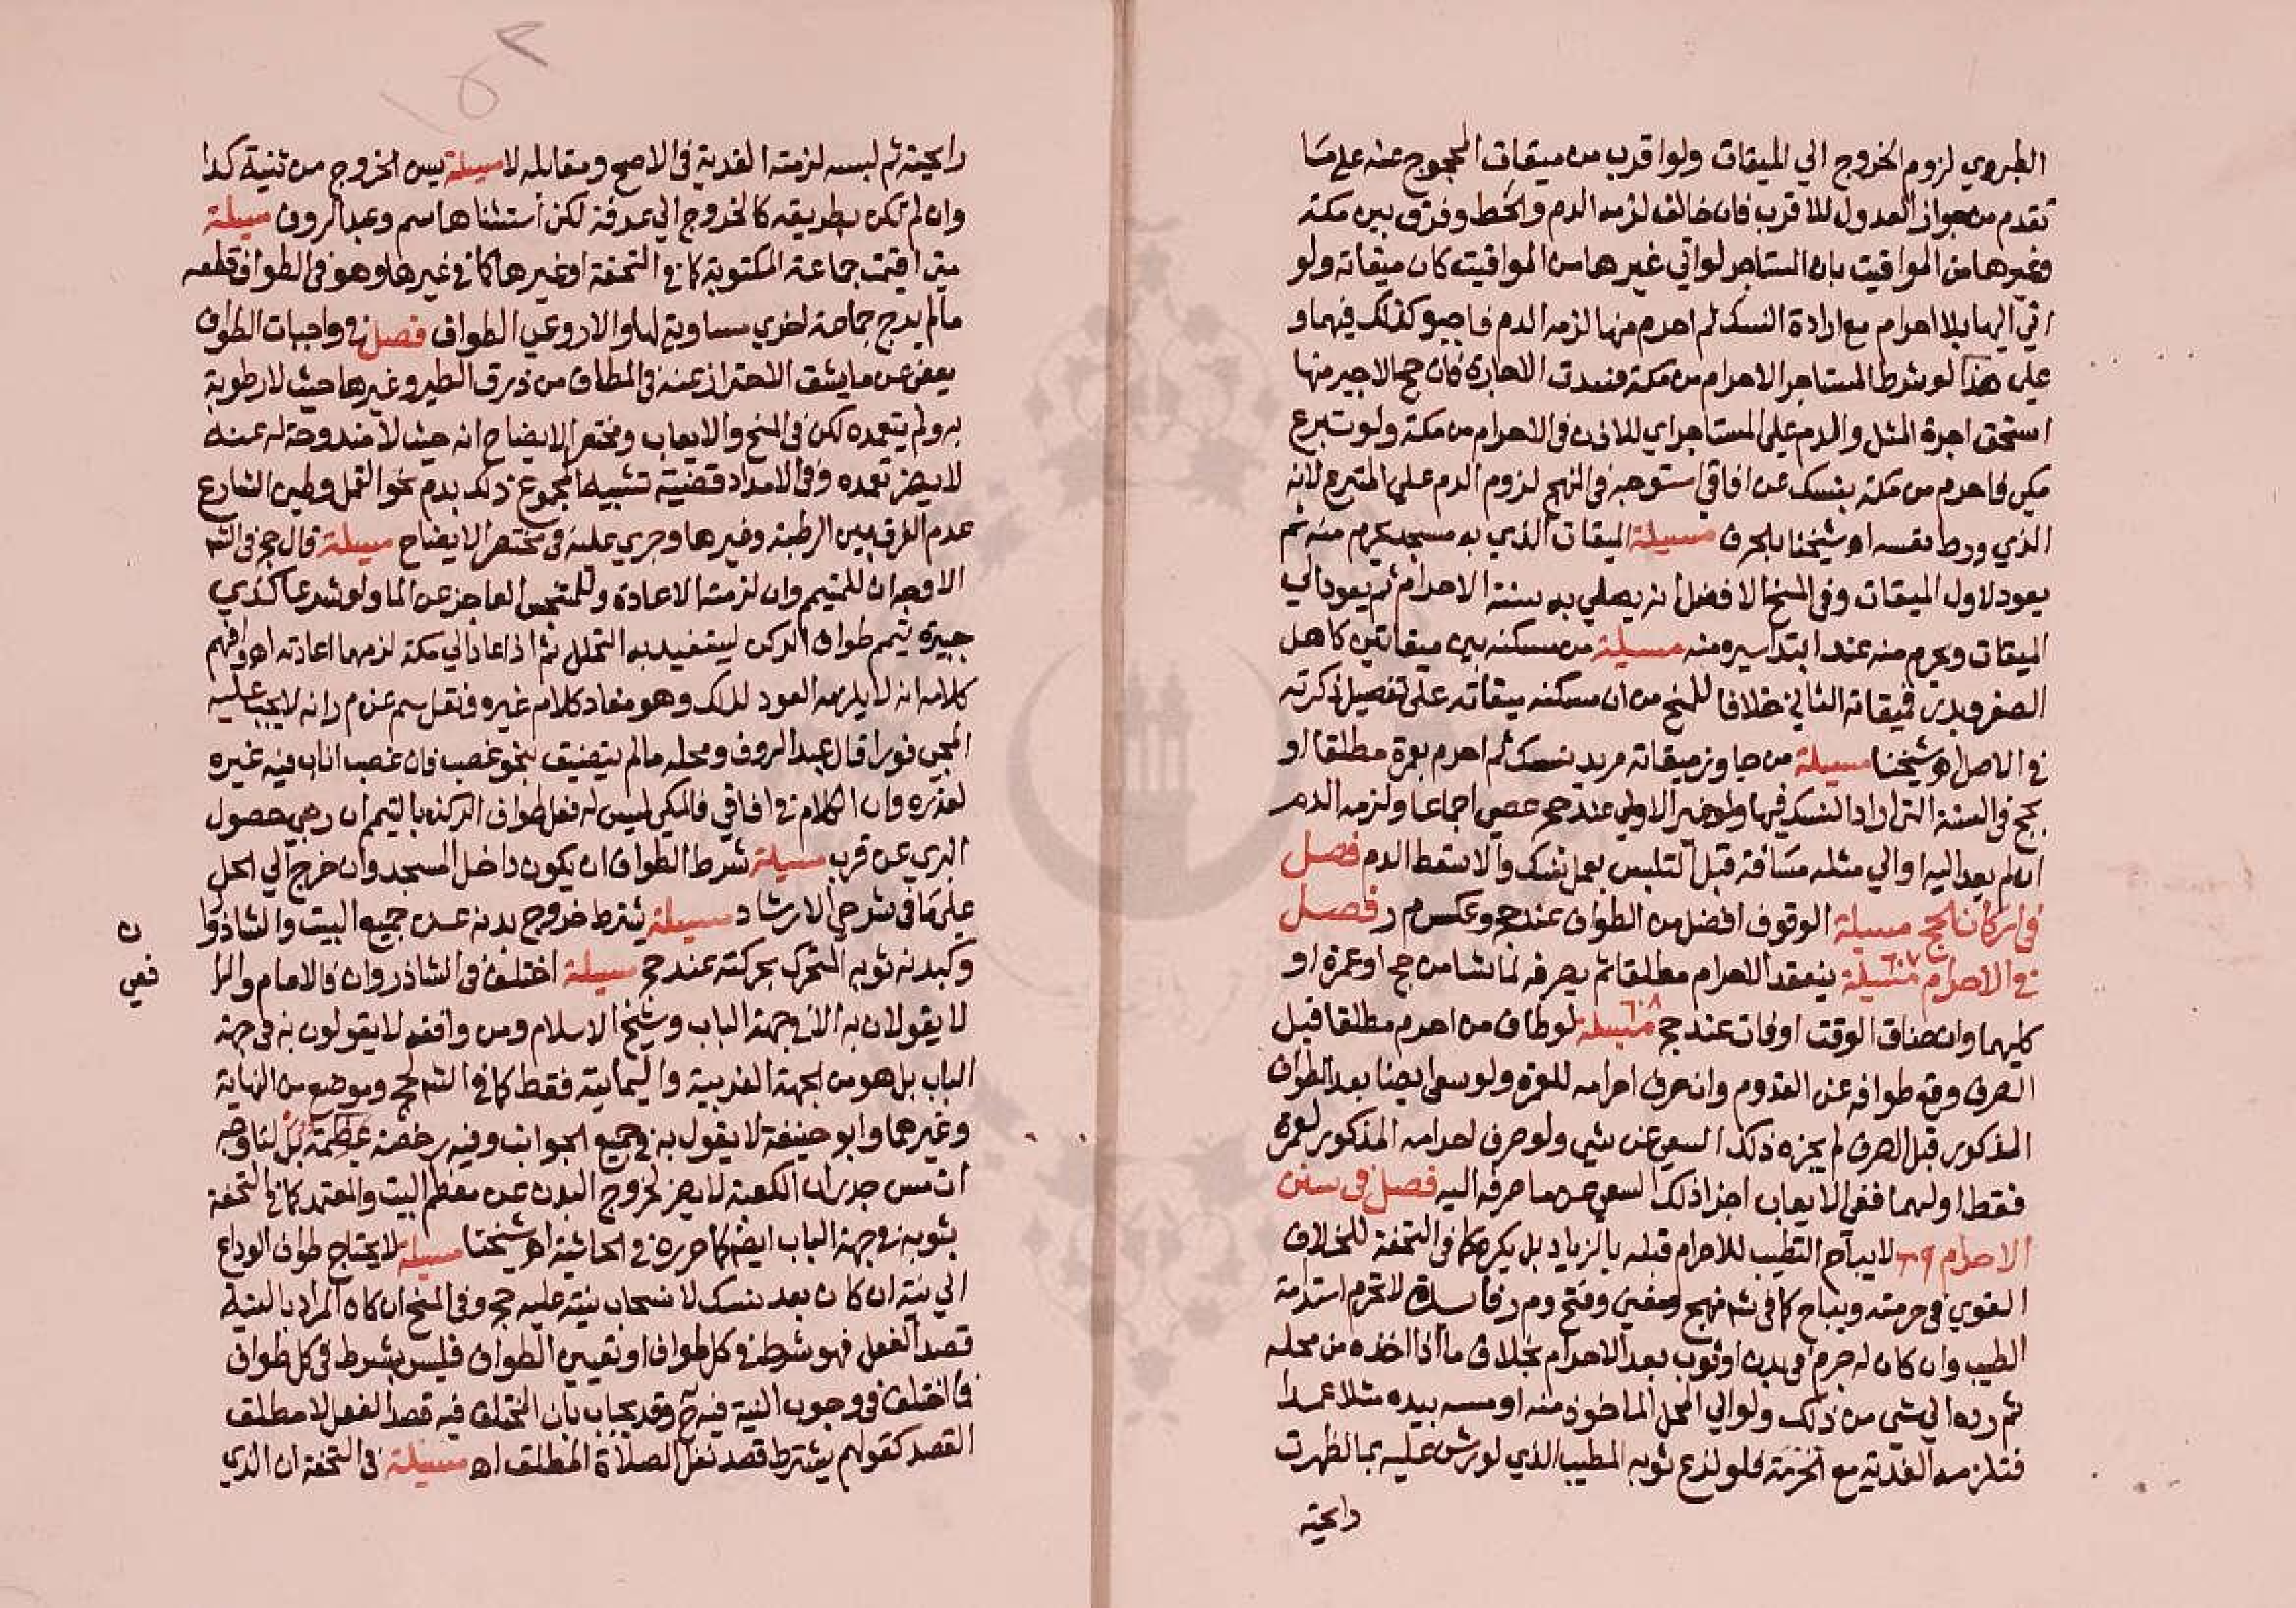 الطبري لزوم الخروج الي الميقات ولو اقرب من ميقات المحجوج عنه علي مَا
تقدم من جواز العدول للاقرب فان خالف لزمه الدم والحط وفرق بين مكة
وغيرها من المواقيت بان المستاجر لو اتي غيرها من المواقيت كان ميقاته ولو
اتي اليها بلا احرام مع ارادة النسك ثم احرم منها لزمه الدم فاجير كذلك فيهما و
علي هذا لو شرط المستاجر الاحرام من مكة فسدت الاجارة فان حج الاجير منها
استحق اجرة المثل والدم علي المستاجر اي للاذن في الاحرام من مكة ولو تبرع
مكي فاحرم من مكة بنسك عن افاقي استوجه في النهج لزوم الدم علي المتبرع لانه
الذي ورط نفسه اه شيخنا بالحرف مسيلة الميقات الذي به مسجد يحرم منه ثم
يعود لاول الميقات وفي المنح الافضل ان يصلي به سنة الاحرام ثم يعود الي
الميقات ويحرم منه عند ابتدا سيره منه مسيلة من مسكنه بين ميقاتين كاهل
الصفرا وبدر فميقاته الثاني خلافا للمنح من ان مسكنه ميقاته علي تفصيل ذكرته
في الاصل اه شيخنا مسيلة من جاوز ميقاته مريد نسك ثم احرم بعمرة مطلقا او
بحج في السنة التي اراد النسك فيها عند حج عصي اجماعا ولزمه الدم
ان لم يعد اليه او الي مثله مسَافة قبل التلبس بعمل نسك والا سقط الدم فصل
في اركان الحج مسيلة الوقوف افضل من الطواف عند حج وعكس م ر فصل
في الاحرام مسيلة ٦٠٧ ينعقد الاحرام مطلقا ثم يصرفه لما شا من حج او عمرة او
كليهما وان ضاق الوقت او فات عند حج مسيلة ٦٠٨ لو طاف من احرم مطلقا قبل
الصرف وقع طوافه عن القدوم وان صرف احرامه للعمرة ولو سعي ايضا بعد الطواف
المذكور قبل الصرف لم يجزه ذلك السعي عن شي ولو صرف احرامه المذكور لعمرة
فقط او لهما ففي الايعاب اجزا ذلك السعي عن ما صرفه اليه فصل في سنن
الاحرام لا يباح التطيب للاحرام قبله بالزباد بل يكره كما في التحفة للخلاف
القوي في حرمته ويباح كما في شم نهج ومغني وفتح وم ر لا تحرم استدامة
الطيب وان كان له جرم في بدن او ثوب بعد الاحرام بخلاف ما اذا اخذه من محله
ثم رده الي شي من ذلك ولو الي المحل الماخوذ منه او مسه بيده مثلا عمدا
فتلزمه الفدية مع الحرمة فلو نزع ثوبه المطيب الذي لو رش عليه بما لظهرت
رايحته
رايحته ثم لبسه لزمته الفدية في الاصح ومقابله لا مسيلة يسن الخروج من ثنية كدا
وان لم تكن بطريقه كالخروج الي عرفة لكن استثناها سم وعبد الروف مسيلة
متي اقيمت جماعة المكتوبة كما في التحفة او غيرها كما في غيرها وهو في الطواف قطعه
ما لم يرج جماعة اخري مساوية لها والا روعي الطواف فصل في واجبات الطواف
يعفي عن ما يشق الاحتراز عنه في المطاف من ذرق الطير وغيرها حيث لا رطوبة
به ولم يتعمده لكن في المنح والايعاب ومختصر الايضاح انه حيث لا مندوحة له عنه
لا يضر تعمده وفي الامداد قضية تشبيه المجموع ذلك بدم نحو القمل وطين الشارع
عدم الفرق بين الرطبة وغيرها وجري عليه في مختصر الايضاح مسيلة قال حج في التحـ
الاوجه ان للمتيمم وان لزمته الاعادة وللمتنجس العاجز عن الما ولو شرعا كذي
جبيرة يتمم طواف الركن ليستفيد به التحلل ثم اذا عاد الي مكة لزمهما اعادته اه وافهم
كلامه انه لا يلزمه العود لذلك وهو مفاد كلام غيره ونقل سم عن م ر انه لا يجب عليه
المجي فورا قال عبد الروف ومحله ما لم يتضيق بنحو عضب فان عضب اناب فيه غيره
لعذره وان الكلام في افاقي فالمكي ليس له فعل طواف الركن بالتيمم ان رجي حصول
البري عن قرب مسيلة شرط الطواف ان يكون داخل المسجد وان خرج الي الحل
علي مَا في شرحي الارشاد مسيلة يشترط خروج بدنه عن جميع البيت والشاذروا
ن
وكبدنه ثوبه المتحرك بحركته عند حج مسيلة اختلف في الشاذروان فالامام والرا
فعي
لا يقولان به الا في جهة الباب وشيخ الاسلام ومن وافقه لا يقولون به في جهة
الباب بل هو من الجهة الغربية واليمانية فقط كما في التـ لحج وموضع من النهاية
وغيرهما وابو حنيفة لا يقول به في جميع الجوانب وفيه رخصة عظيمة بل لنا وجه
ان مس جدران الكعبة لا يضر لخروج البدن عن معظم البيت والمعتمد كما في التحفة
بثوبه في جهة الباب ايضا كما حرره في الحاشية اه شيخنا مسيلة لا يحتاج طواف الوداع
الي نية ان كان بعد نسك لانسحاب نيته عليه حج وفي المنح ان كان المراد بالنية
قصد الفعل فهو شرط في كل طواف او تعيين الطواف فليس بشرط في كل طواف
فما اختلف في وجوب النية فيه ح وقد يجاب بان المختلف فيه قصد الفعل لا مطلق
القصد كقولهم يشترط قصد نفل الصلاة المطلق اه مسيلة في التحفة ان الذي